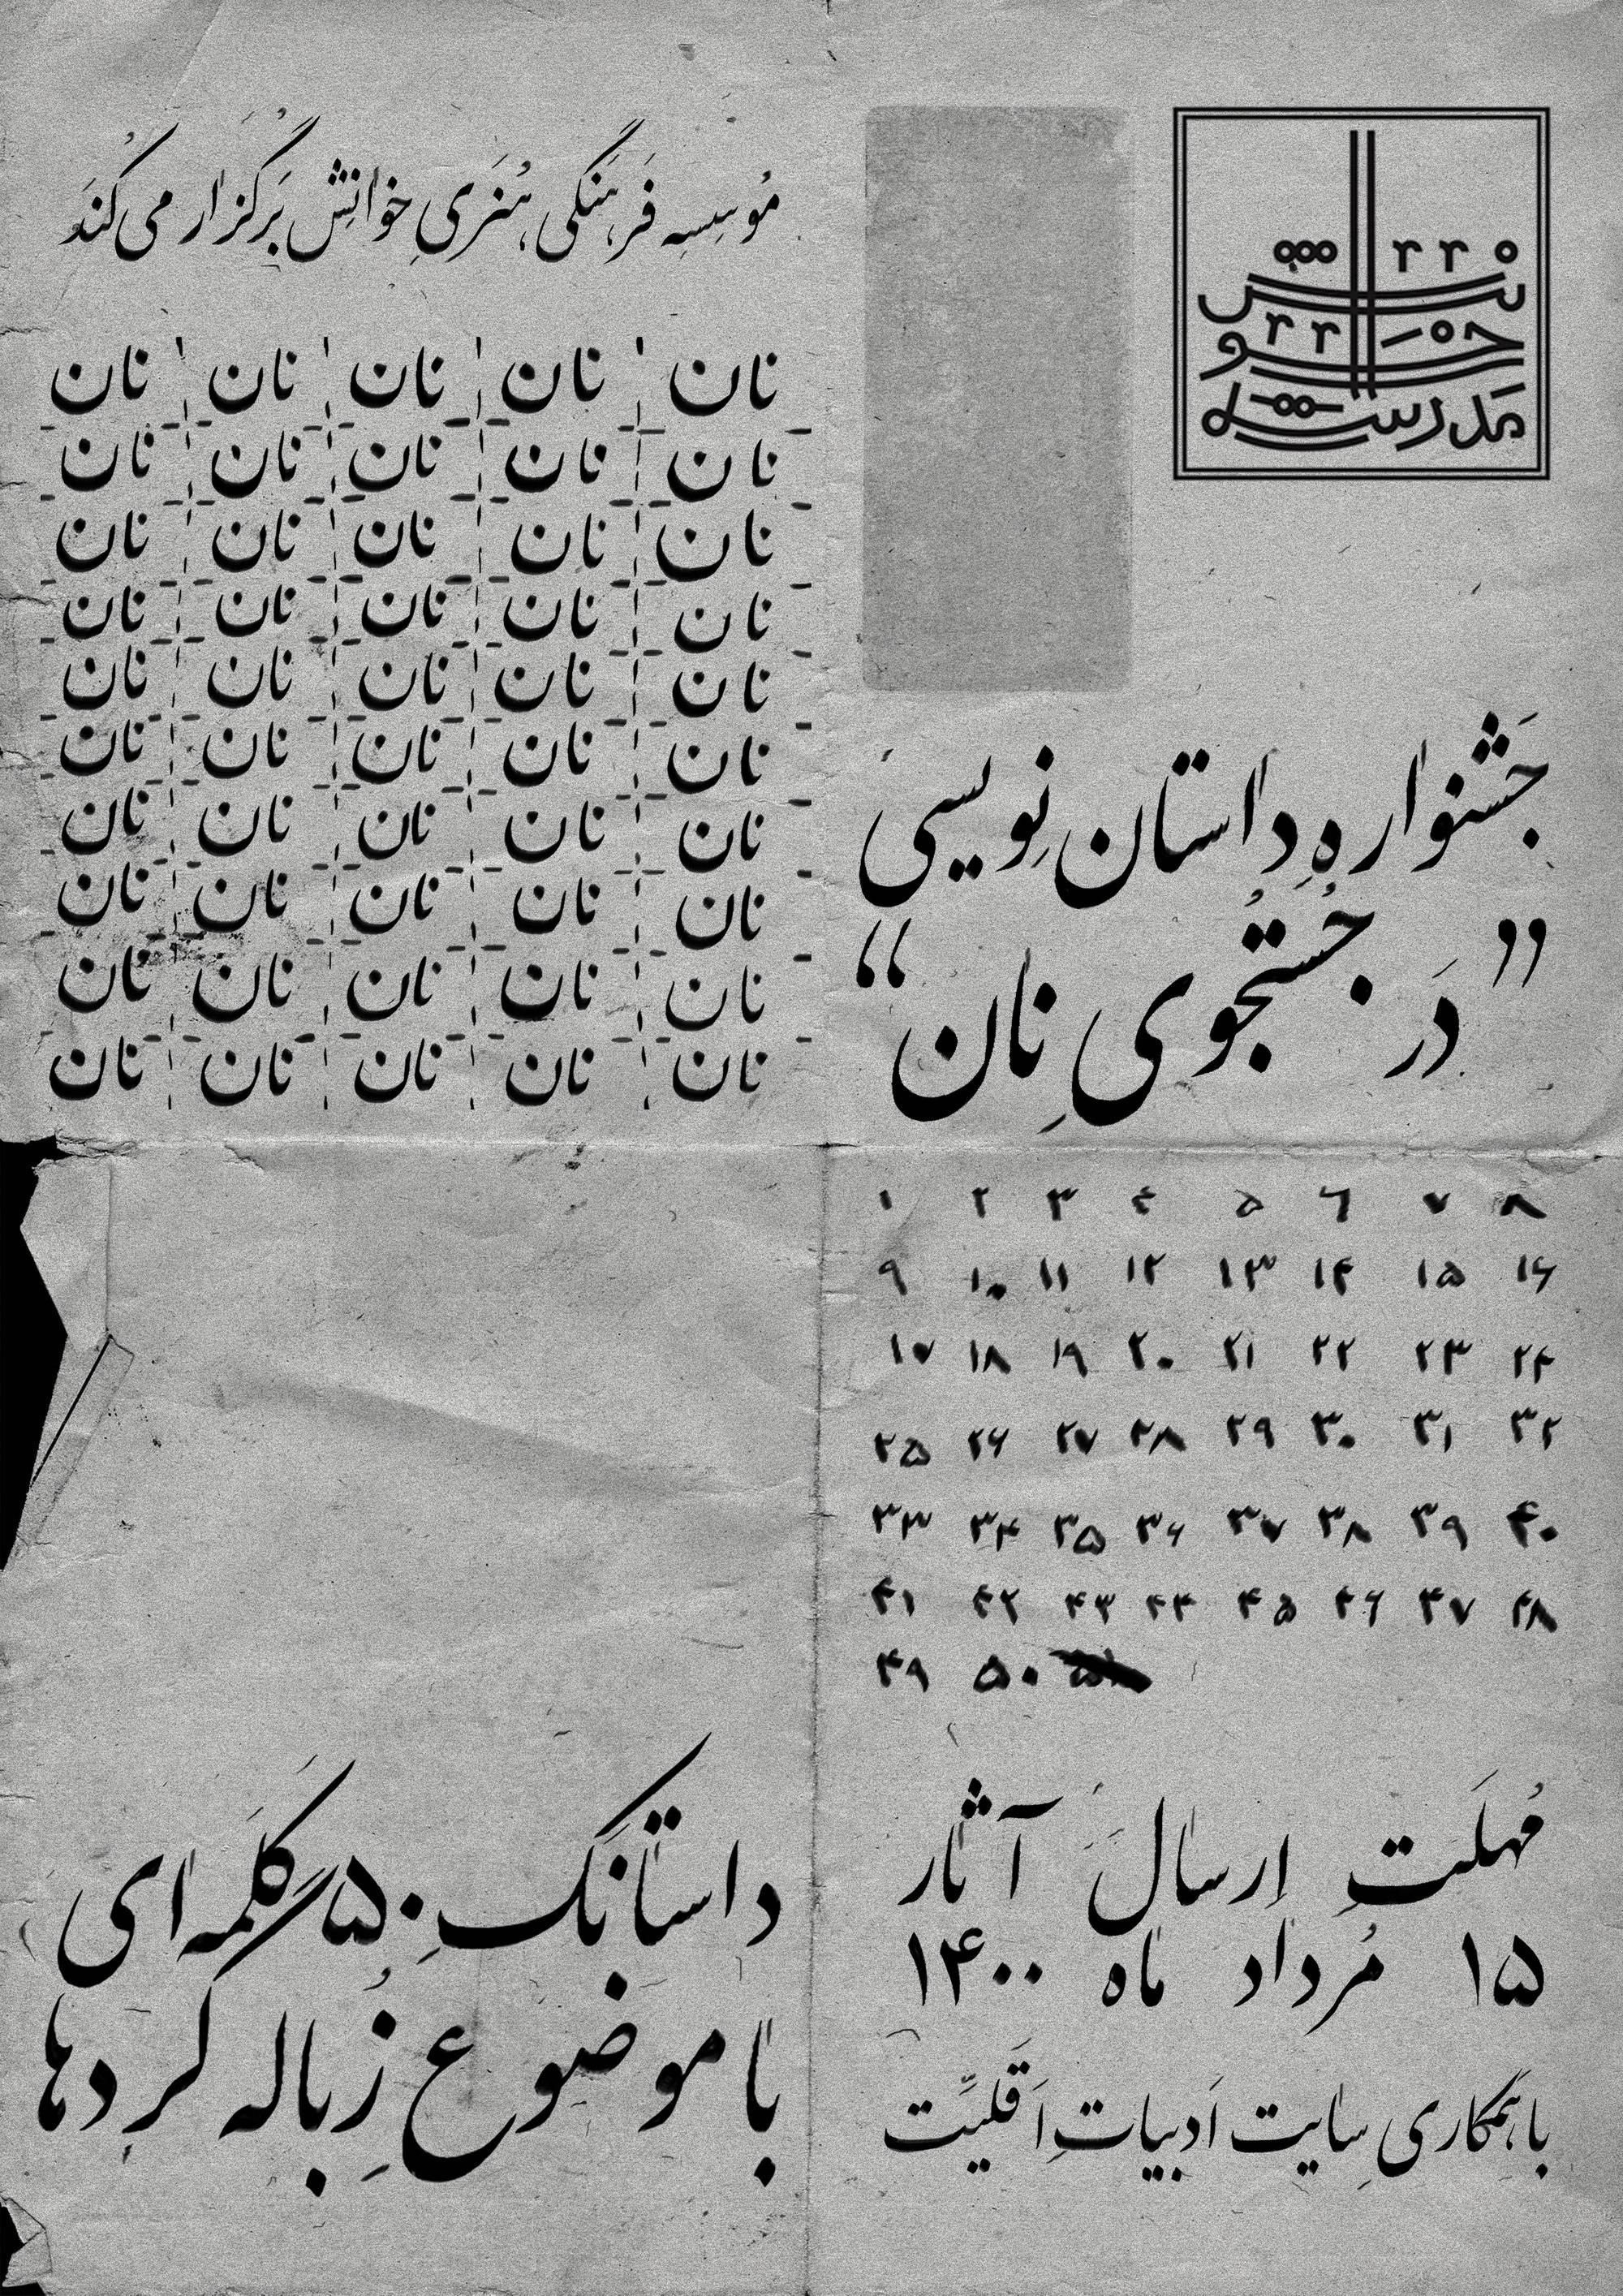 مدرسه خوانش
مُوسِسِه فَرهَنگی هُنَریِ خوانِش بَرگُزار می‌کُنَد
نان نان نان نان نان
نان نان نان نان نان
نان نان نان نان نان
نان نان نان نان نان
نان نان نان نان نان
نان نان نان نان نان
نان نان نان نان نان
نان نان نان نان نان
نان نان نان نان نان
نان نان نان نان نان
جَشنواره‌ِ داستان نِویسی
”دَر جُستُجویِ نان“
۱ ۲ ۳ ۴ ۵ ۶ ۷ ۸
۹ ۱۰ ۱۱ ۱۲ ۱۳ ۱۴ ۱۵ ۱۶
۱۷ ۱۸ ۱۹ ۲۰ ۲۱ ۲۲ ۲۳ ۲۴
۲۵ ۲۶ ۲۷ ۲۸ ۲۹ ۳۰ ۳۱ ۳۲
۳۳ ۳۴ ۳۵ ۳۶ ۳۷ ۳۸ ۳۹ ۴۰
۴۱ ۴۲ ۴۳ ۴۴ ۴۵ ۴۶ ۴۷ ۴۸
۴۹ ۵۰
مُهلَتِ اِرسالِ آثار
۱۵ مُرداد ماه ۱۴۰۰
با هَمکاریِ سایت اَدبیاتِ اَقَلیَّت
داستانَکِ ۵۰ کَلَمه‌ای
با موضوعِ زُباله گَردها